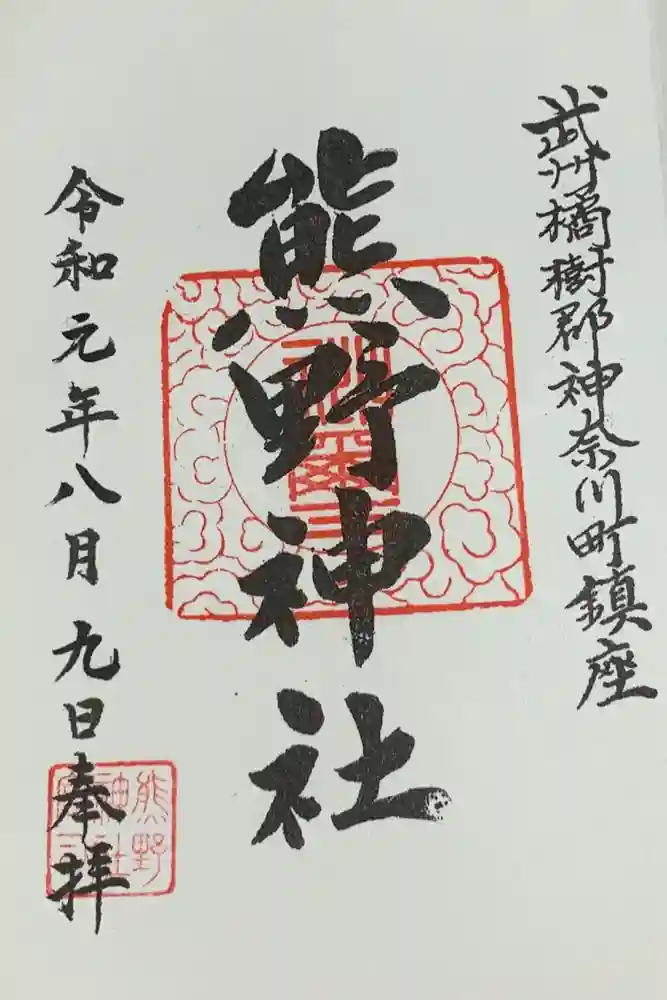 武州橘樹郡神奈川町鎮座
熊野神社
令和元年八月九日奉拝
熊野
神社